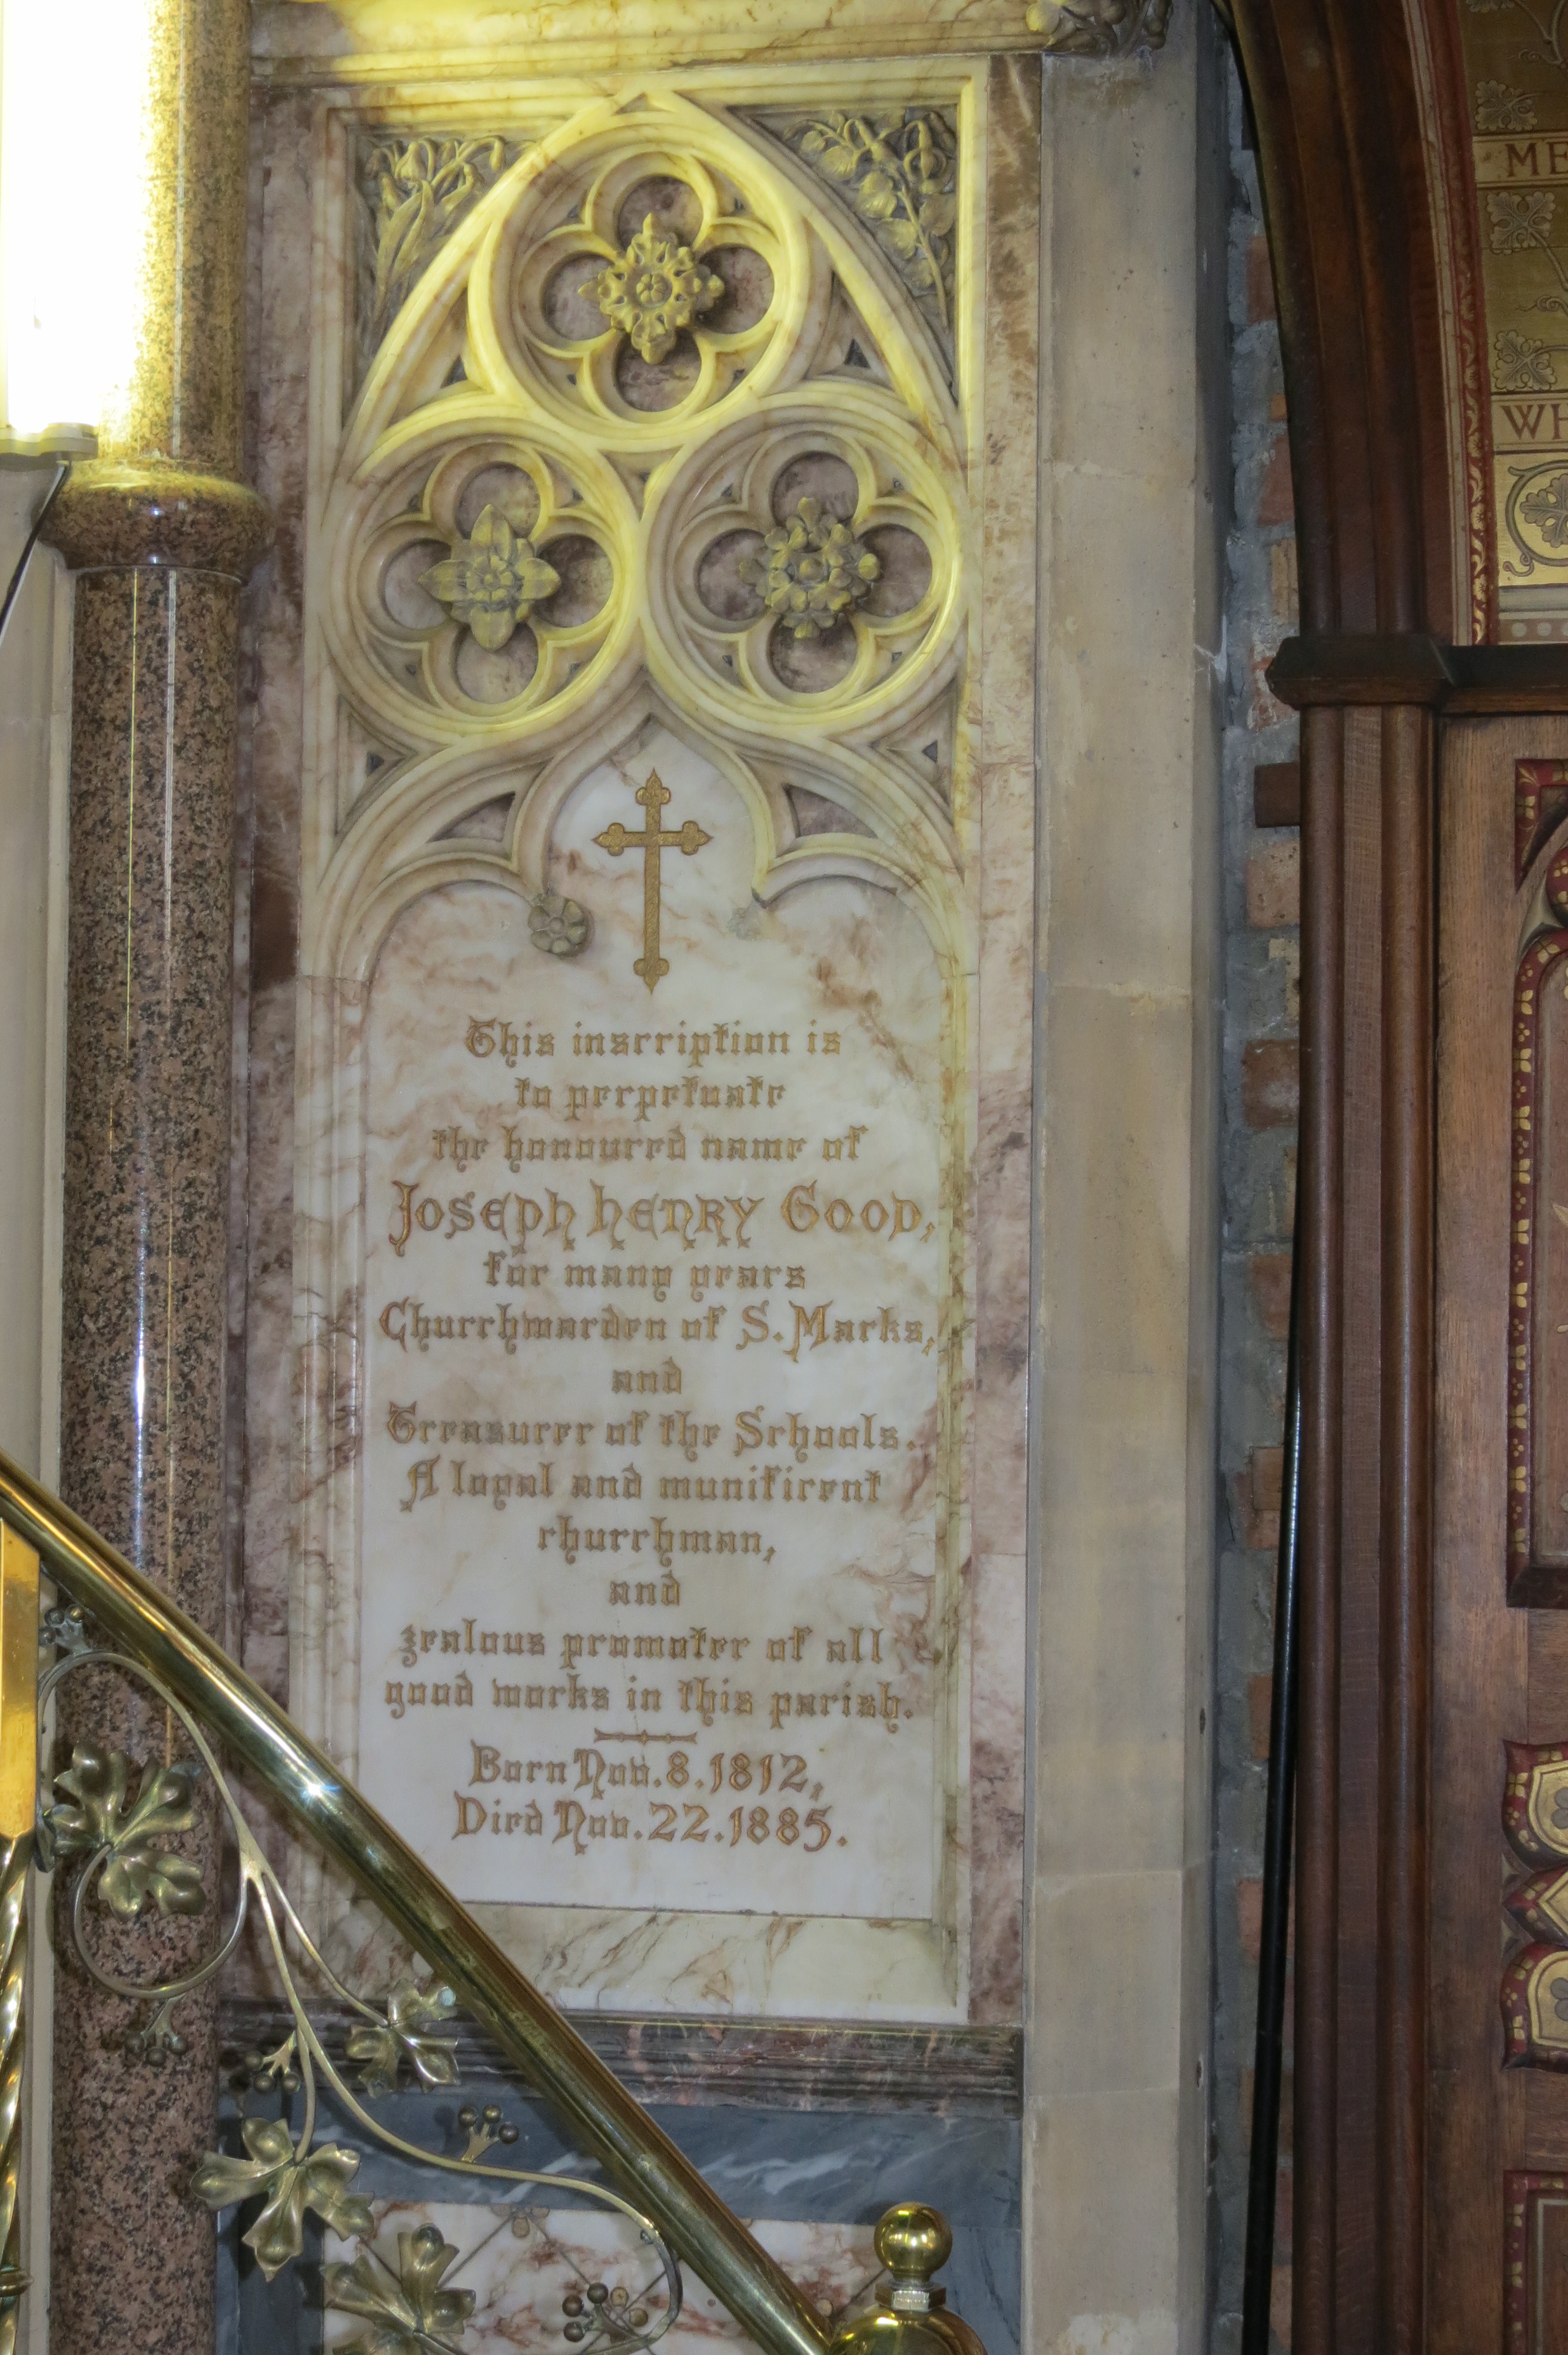 This inscription is
to perpetuate
the honoured name of
Joseph Henry Good,
for many years
Churchwarden of S. Marks,
and
Treasurer of the Schools.
A loyal and munificent
churchman,
and
zealous promoter of all
good works in this parish.
Born Nov. 8. 1812,
Died Nov. 22. 1885.
ME
WH